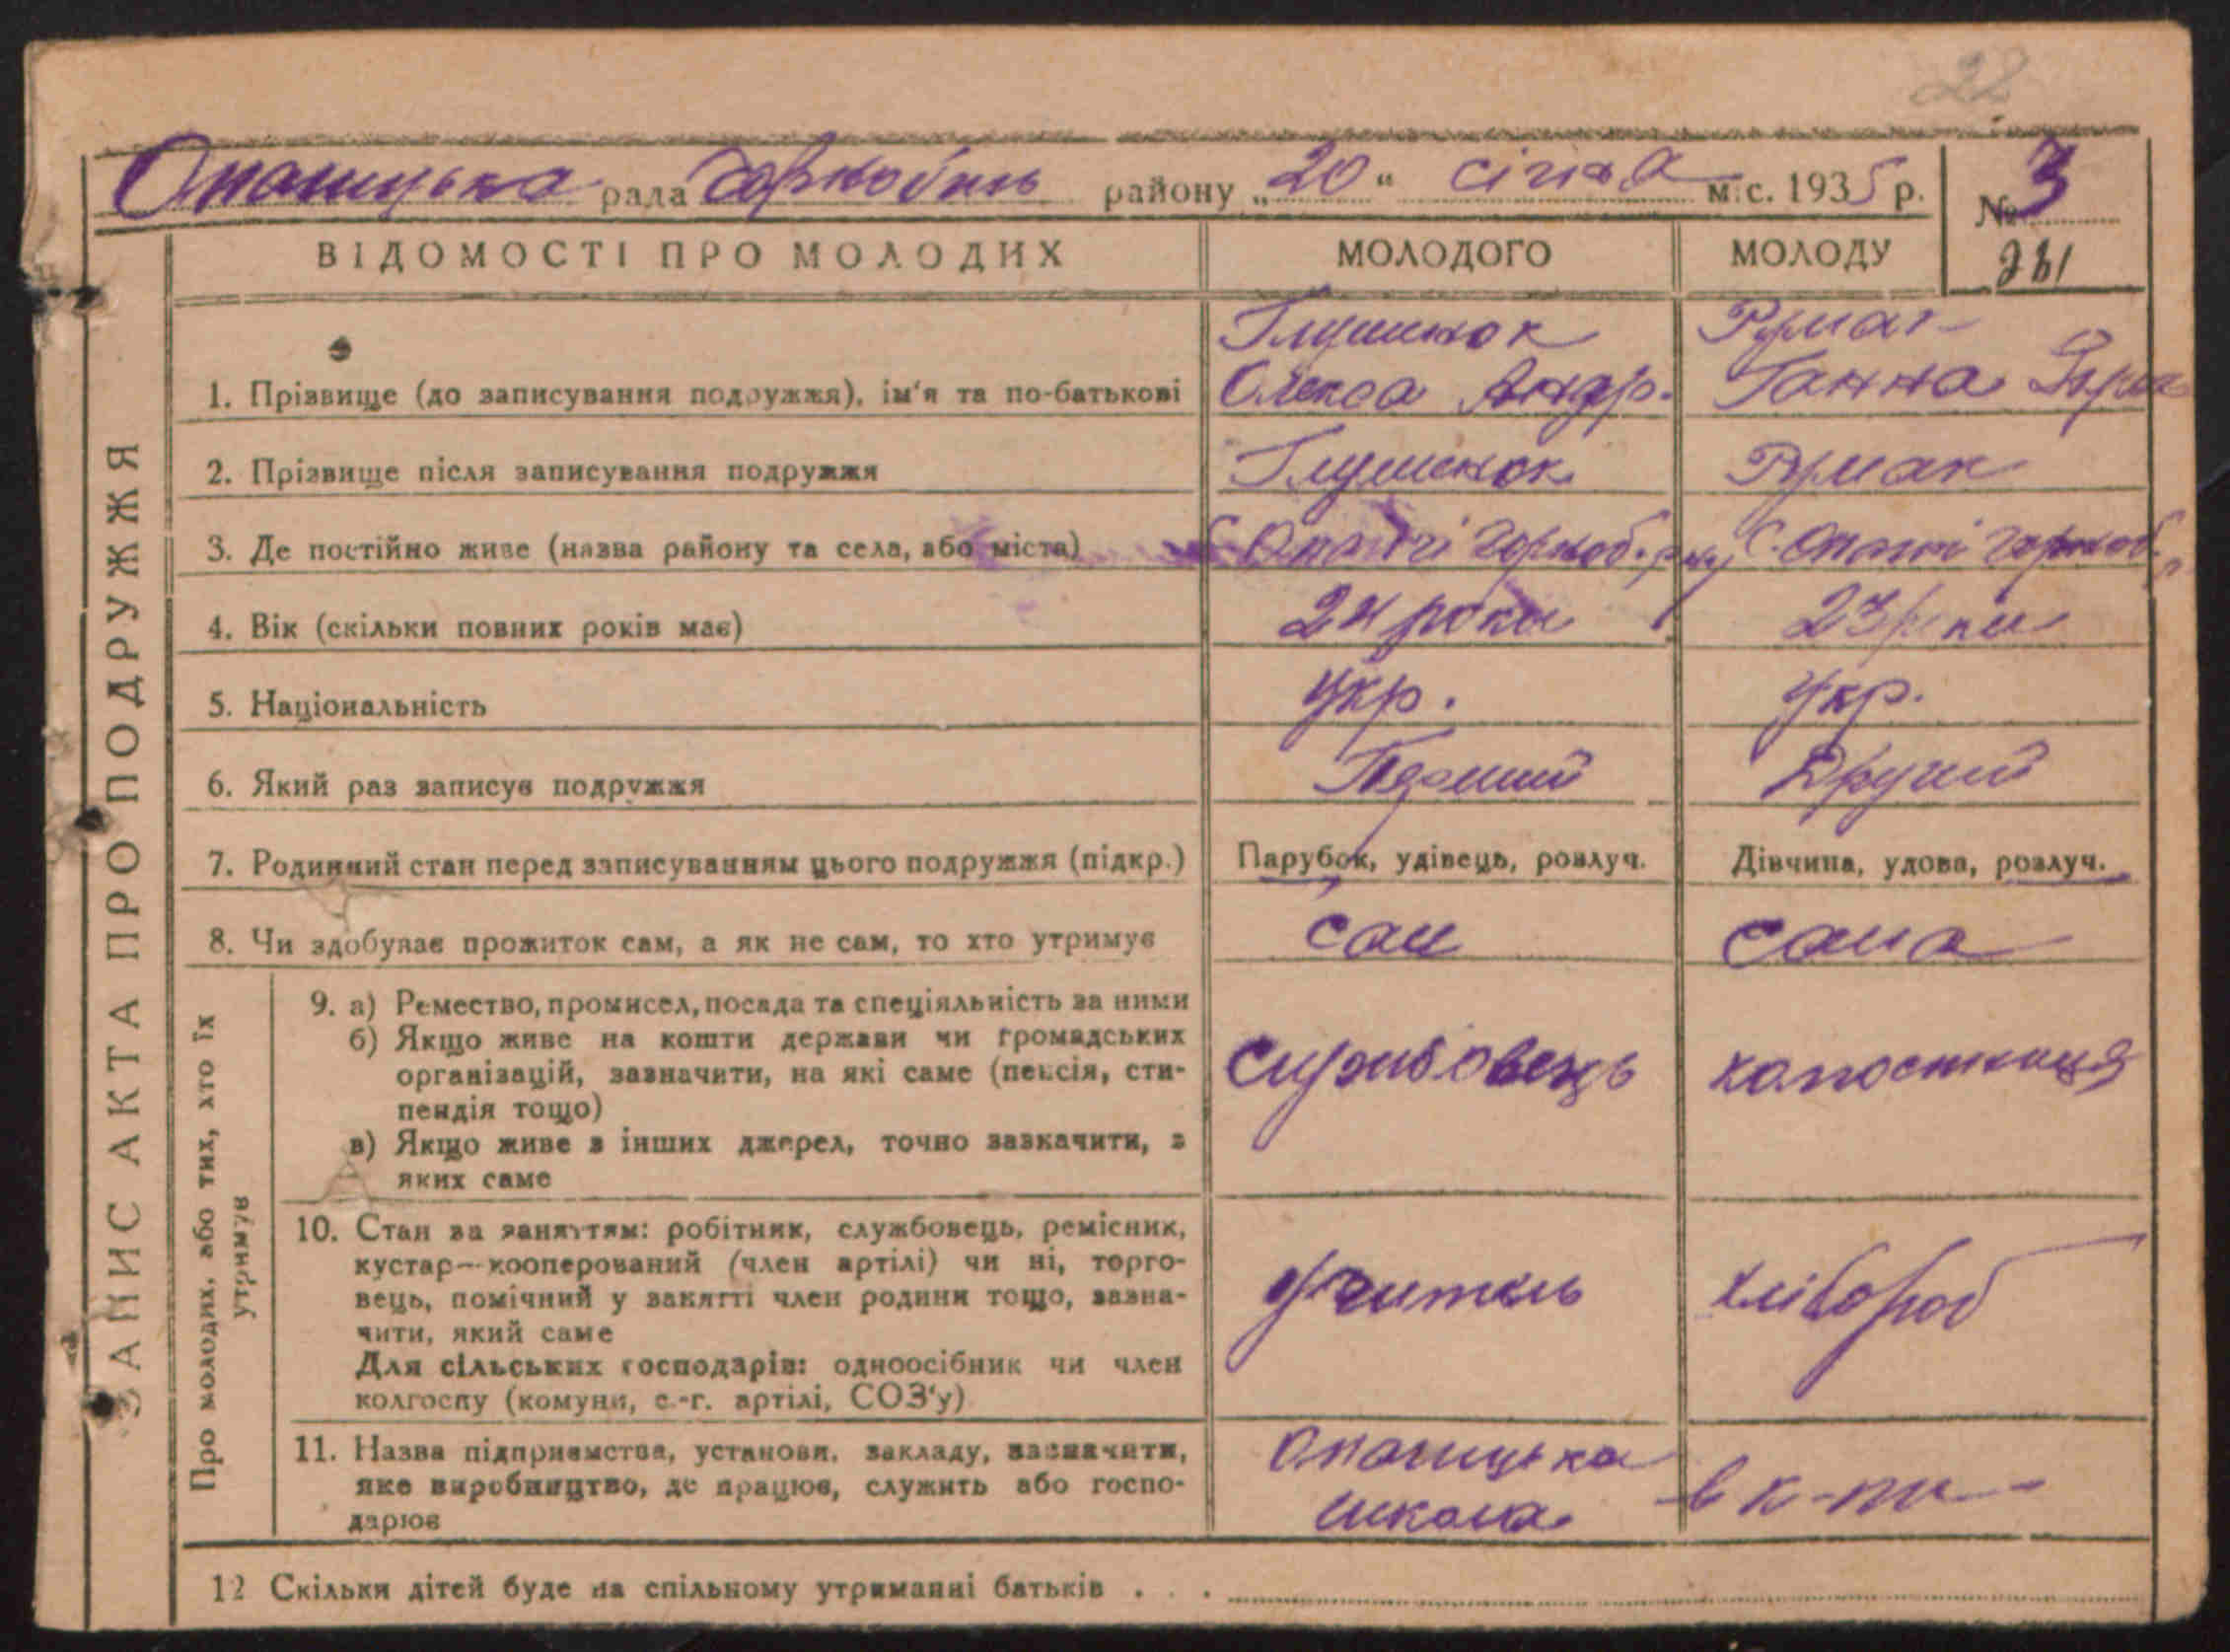 22
Опачицька рада Чорнобиль району „20“ січня міс. 1935 р. № 3
281
ЗАПИС АКТА ПРО ПОДРУЖЖЯ
ВІДОМОСТІ ПРО МОЛОДИХ МОЛОДОГО МОЛОДУ
1. Прізвище (до записування подружжя), ім'я та по-батькові Глушенок Олекса Андр. Рурмак Ганна
2. Прізвище після записування подружжя Глушенок Рурмак
3. Де постійно живе (назва району та села, або міста) С. Опачичі Чорноб. р-ну С. Опачичі Чорноб.
4. Вік (скільки повних років має) 24 роки 23 роки
5. Національність Укр. Укр.
6. Який раз записує подружжя Перший Другий
7. Родинний стан перед записуванням цього подружжя (підкр.) Парубок, удівець, розлуч. Дівчина, удова, розлуч.
8. Чи здобуває прожиток сам, а як не сам, то хто утримує сам сама
Про молодих, або тих, хто їх утримує
9. а) Ремество, промисел, посада та спеціяльність за ними
б) Якщо живе на кошти держави чи громадських
організацій, зазначити, на які саме (пенсія, сти-
пендія тощо)
в) Якщо живе з інших джерел, точно зазначити, з
яких саме
службовець колгоспниця
10. Стан за заняттям: робітник, службовець, ремісник,
кустар—кооперований (член артілі) чи ні, торго-
вець, помічний у занятті член родини тощо, зазна-
чити, який саме
Для сільських господарів: одноосібник чи член
колгоспу (комуни, с.-г. артілі, СОЗ'у)
учитель хлібороб
11. Назва підприємства, установи, закладу, зазначити,
яке виробництво, де працює, служить або госпо-
дарює
Опачицька
школа
в к-пи
12 Скільки дітей буде на спільному утриманні батьків . . .